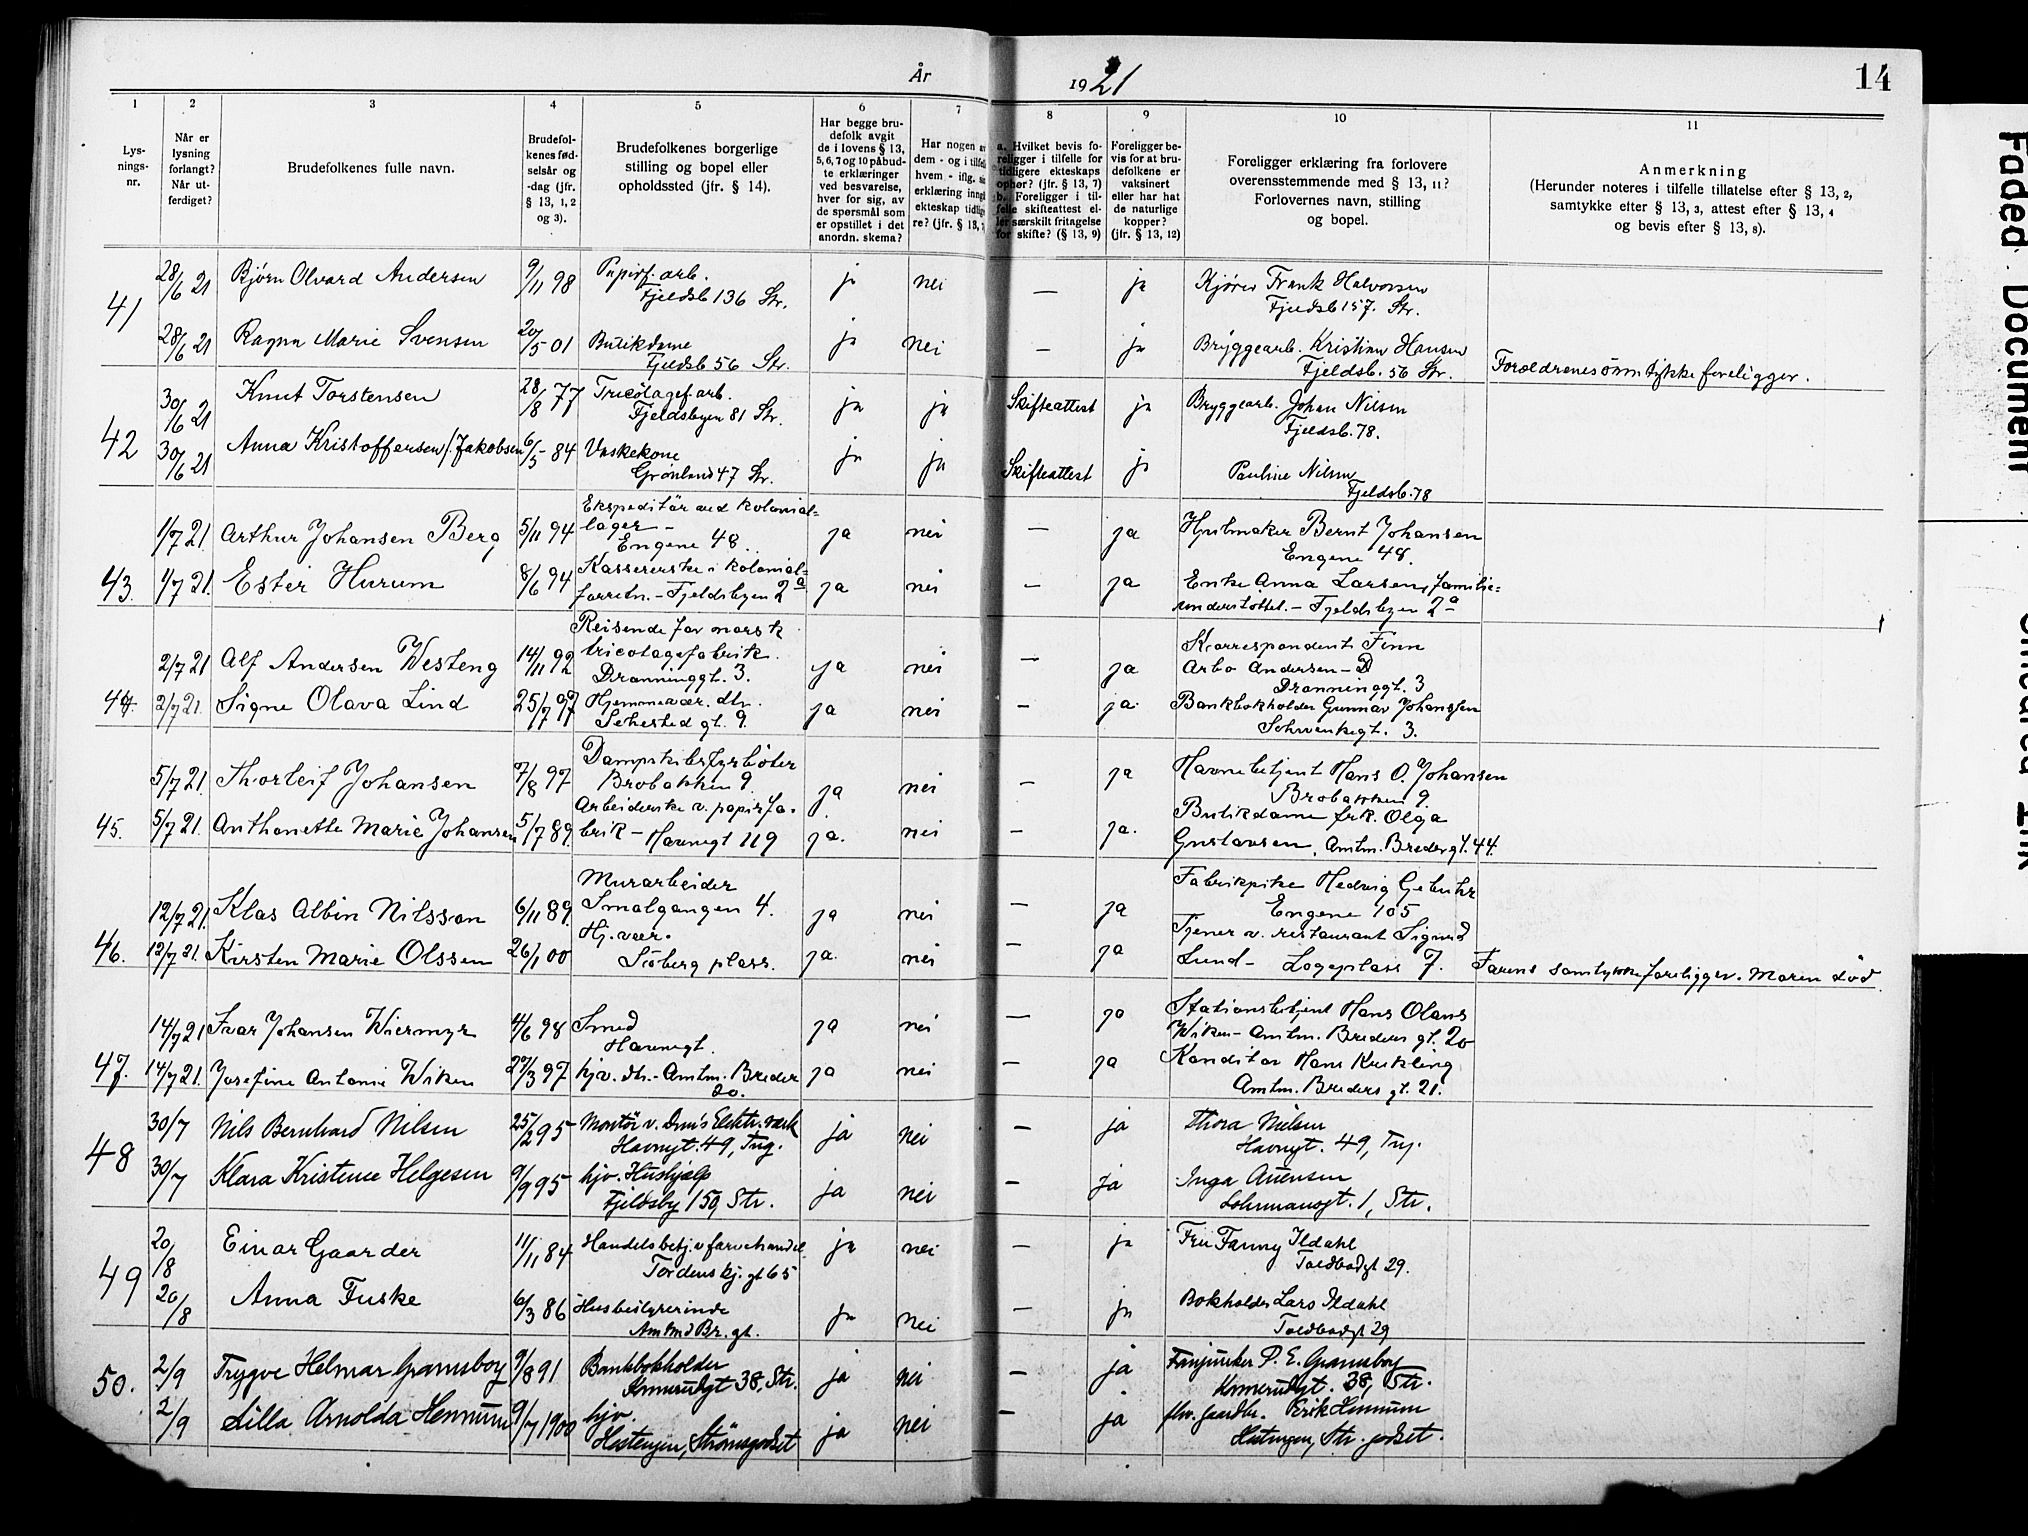 År 1921
14
1 2 3 4 5 6 7 8 9 10 11
Lys-
nings-
nr.
Når er
lysning
forlangt?
Når ut-
ferdiget?
Brudefolkenes fulle navn.
Brudefol-
kenes fød-
selsår og
-dag (jfr.
§ 13, 1, 2
og 3).
Brudefolkenes borgerlige
stilling og bopel eller
opholdssted (jfr. § 14).
Har begge bru-
defolk avgit
de i lovens § 13,
5, 6, 7 og 10 påbud-
te erklæringer
ved besvarelse,
hver for sig, av
de spørsmål som
er opstillet i det
anordn. skema?
Har nogen av
dem - og i tilfelle
hvem - iflg. sin
erklæring inngått
ekteskap tidlige-
re? (jfr. § 13,
a. Hvilket bevis fo-
religger i tilfelle for
tidligere ekteskaps
ophør? (jfr. § 13, 7)
b. Foreligger i til-
felle skifteattest el-
ler særskilt fritagelse
for skifte? (§ 13, 9)
Foreligger be-
vis for at bru-
defolkene er
vaksinert
eller har hat
de naturlige
kopper?
(jfr. § 13, 12)
Foreligger erklæring fra forlovere
overensstemmende med § 13, 11?
Forlovernes navn, stilling
og bopel.
Anmerkning
(Herunder noteres i tilfelle tillatelse efter § 13, 2,
samtykke efter § 13, 3, attest efter § 13, 4
og bevis efter § 13, 8).
41
28/6 21 Bjørn Olvard Andersen 9/11 98 Papirf. arb. ja nei — ja Kjører Frank Halvorsen
Fjeldsb 136 Str. Fjeldsb 157. Str.
28/6 21 Ragna Marie Svensen 20/5 01 Butikdame ja nei — ja Bryggearb. Kristian Hansen
Fjeldsb 56 Str. Fjeldsb. 56 Str. Forældrenes samtykke foreligger.
42
30/6 21 Knut Torstensen 28/8 77 Tricotagef. arb. ja ja Skifteattest ja Bryggearb. Johan Nilsen
Fjeldsbyen 81 Str. Fjeldsb. 78.
30/6 21 Anna Kristoffersen f. Jakobsen 6/5 84 Vaskekone ja ja Skifteattest ja Pauline Nilsen
Grønland 47 Str. Fjeldsb. 78
43.
1/7 21. Arthur Johansen Berg 5/11 94 Ekspeditør ved kolonial-
lager - ja nei — ja Hjulmaker Bernt Johansen
Engene 48. Engene 48.
1/7 21. Ester Hurum 8/6 94 Kassererske i kolonial-
forretn. - Fjeldsbyen 2a ja nei — ja Enke Anna Larsen, familie-
understøttet. - Fjeldsbyen 2a
44.
2/7 21 Alf Andersen Westeng 14/11 92 Reisende for norsk
tricotagefabrik. ja nei — ja Korrespondent Finn
Arbo Andersen - D
Dronninggt. 3. Dronninggt. 3
2/7 21. Signe Olava Lind 25/7 97 Hjemmevær. dtr. ja nei — ja. Bankbokholder Gunnar Johanssen
Sehested gt. 9. Schwenkegt. 3.
45.
5/7 21. Thorleif Johansen 7/8 97 Dampskibsfyrbøter ja nei — ja Havnebetjent Hans O. Johansen
Brobakken 9. Brobakken 9.
5/7 21. Anthonette Marie Johansen 5/7 89. Arbeiderske v. papirfa-
brik - Havnegt 119 ja. nei — ja. Butikdame frk. Olga
Gustavsen, Amtm. Bredergt. 44.
46.
12/7 21. Klas Albin Nilsson 6/11 89. Murarbeider ja nei — ja Fabrikpike Hedvig Gebuhr
Smalgangen 4. Engene 105
12/7 21. Kirsten Marie Olssen 26/1 00 Hj. vær. ja. nei — ja Tjener v. restaurant Sigurd
Lund - Logeplass 7. Farens samtykke foreligger. Moren død.
Sieberg plass.
47.
14/7 21 Ivar Johansen Wiermyr 4/6 98 Smed ja nei — ja Stationsbetjent Hans Olaus
Havnegt. Wiken - Amtm. Breders gt. 20
14/7 21. Josefine Antonie Wiken 27/3 97 hjv. dtr. - Amtm. Breder ja nei — ja Konditor Hans Krekling
20. Amtm. Breders gt. 21.
48
30/7 Nils Bernhard Nilsen 25/2 95 Montør v. Drm's Elektr. værk ja nei — ja Thora Nielsen
Havnegt. 49, Tng. Havnegt. 49, Tng.
30/7 Klara Kristense Helgesen 9/9 95 hjv. Hushjælp ja nei — ja Inga
Fjeldsby 150, Str. Lohrmansgt. 1, Str.
49
20/8 Einar Gaarder 11/11 84 Handelsbetj. v farvehandel ja nei — ja Fru Fanny Ildahl
Tordenskj. gt 65 Toldbodgt 29.
20/8 Anna Fuske 6/3 86 Husbestyrerinde ja nei — ja Bokholder Lars Ildahl
Amtmd Br. gt. Toldbodgt 29
50.
2/9 Trygve Helmar Gramsborg 9/8 91 Bankbokholder ja nei — ja Fanejunker P. E. Gramsborg
Konnerudgt 38, Str. Konnerudgt. 38, Str.
2/9 Lilla Arnolda Hennum 9/7 1900 hjv. ja nei — ja fhv. gaardbr. Erik Hennum
Strømsgodset Str. godset.
Faded Document
Smeared Ink